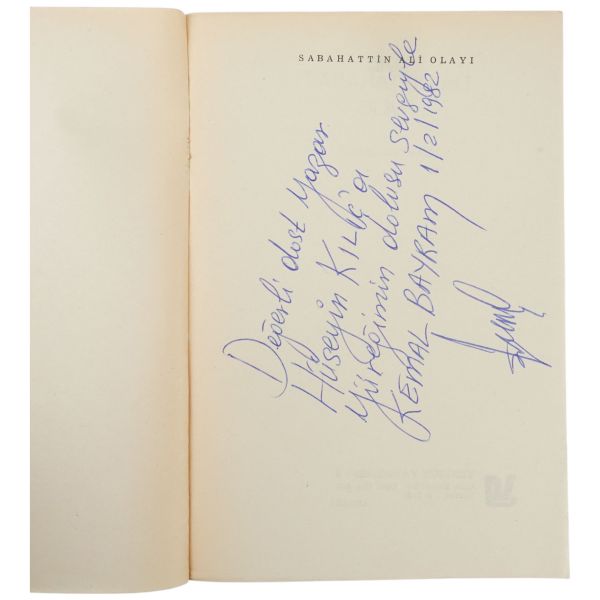 SABAHATTİN ALİ OLAYI
Değerli dost yazar
Hüseyin KILIÇ'a
yüreğimin dolusu sevgiyle
KEMAL BAYRAM 1/2/1982